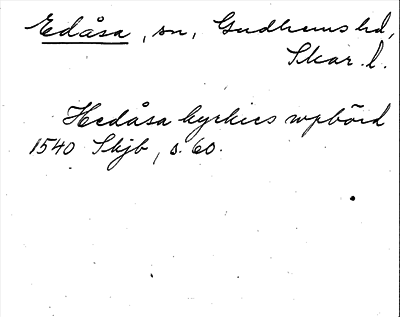 Edåsa, sn, Gudhems hd,
Skar. l.
Hedåsa kyrkies wpbörd
1540 Skjb, s. 60.